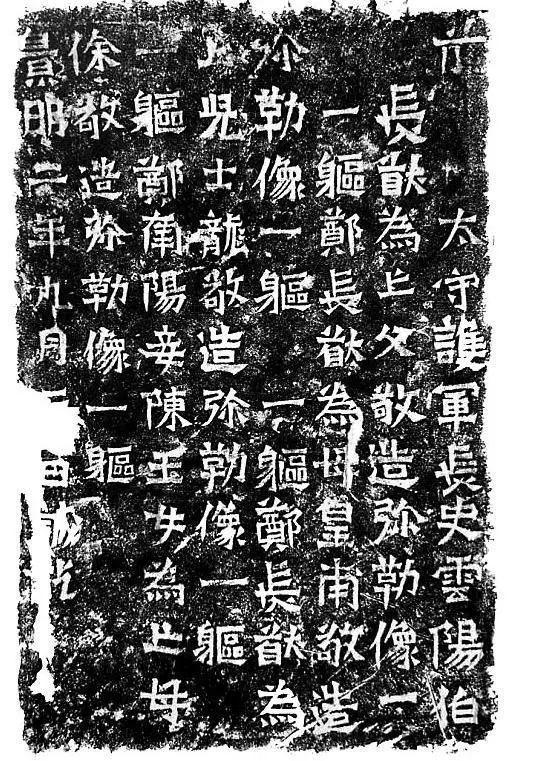 前太守護軍長史雲陽伯
長猷為亡父敬造弥勒像一
一軀鄭長猷為母皇甫敬造
弥勒像一軀一軀鄭長猷為
亡児士龍敬造弥勒像一軀
一軀鄭南陽妾陳玉女為亡母
徐敬造弥勒像一軀
景明二年九月日誡訖